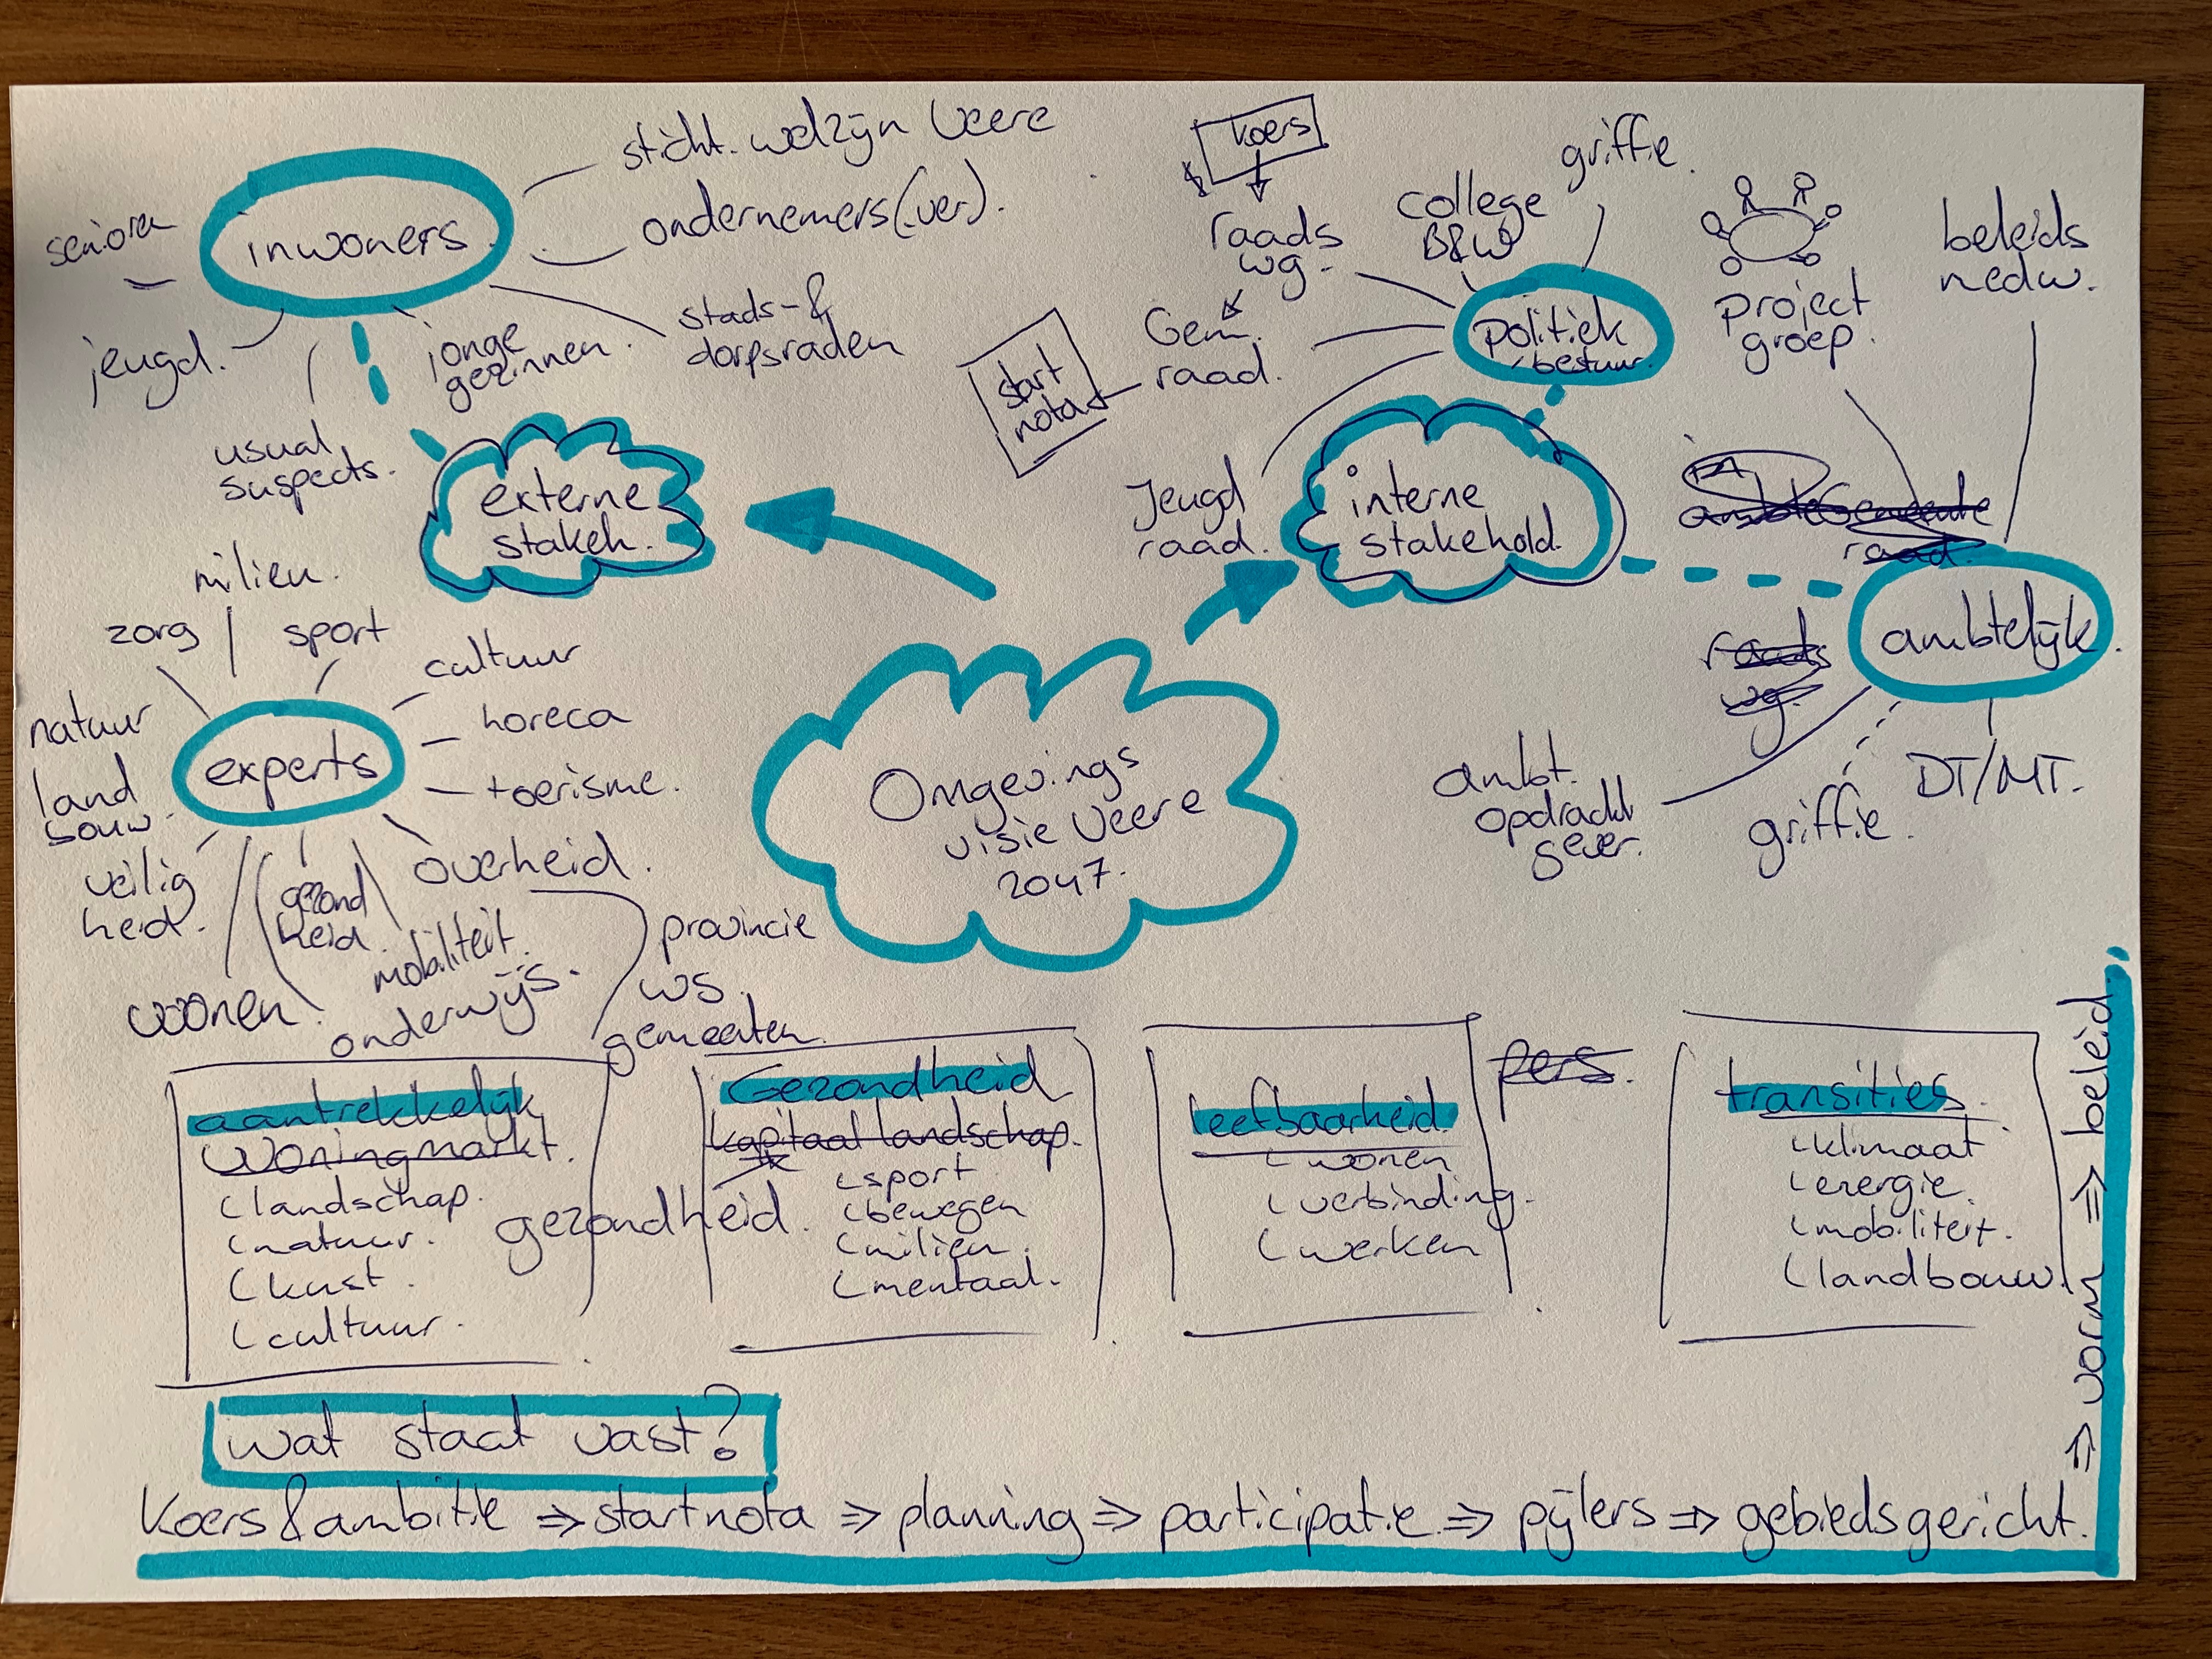 inwoners.
senioren
jeugd.
usual
suspects.
jonge
gezinnen.
sticht. welzijn Veere
ondernemers(ver.).
stads- &
dorpsraden
externe
stakeh.
koers
raads
wg.
Gem.
raad.
start
nota
Jeugd
raad.
college
B&W
griffie.
politiek
/bestuur.
project
groep.
beleids
medw.
interne
stakehold.
Gemeente
raad.
ambtelijk.
raads
wg.
ambt.
opdracht
gever.
griffie.
DT/MT.
milieu.
zorg
sport
cultuur
natuur
horeca
experts
land
bouw.
toerisme.
veilig
heid.
overheid.
gezond
heid.
mobiliteit.
woonen.
onderwijs.
provincie
ws.
gemeenten.
Omgevings
visie Veere
2047.
aantrekkelijk
woningmarkt.
landschap.
natuur.
kust.
cultuur.
gezondheid.
Gezondheid
kapitaal landschap.
sport
bewegen
milieu.
mentaal.
leefbaarheid.
wonen
verbinding.
werken
pers.
transities.
klimaat
energie.
mobiliteit.
landbouw.
wat staat vast?
Koers & ambitie ⇒ startnota ⇒ planning ⇒ participatie ⇒ pijlers ⇒ gebiedsgericht.
⇒ vorm ⇒ beleid.